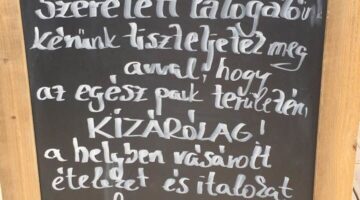 Szeretett Látogatóink
kérünk tiszteljetez meg
avval, hogy
az egész park területén,
KIZÁRÓLAG!
a helyben vásárolt
ételeket és italokat